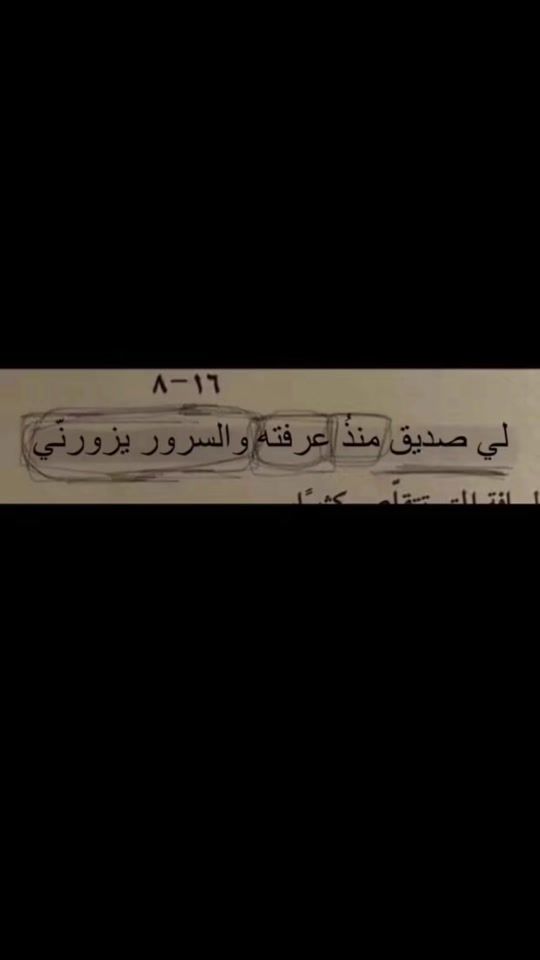 ١٦-٨
لي صديق منذُ عرفته والسرور يزورنّي